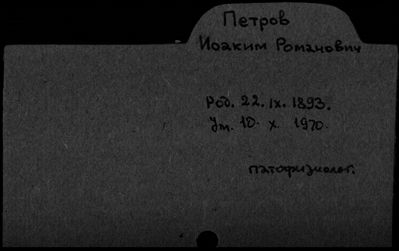 Петров
Иоаким Романович
Род. 22. IX. 1893.
Ум. 10. X. 1970.
патофизиолог.